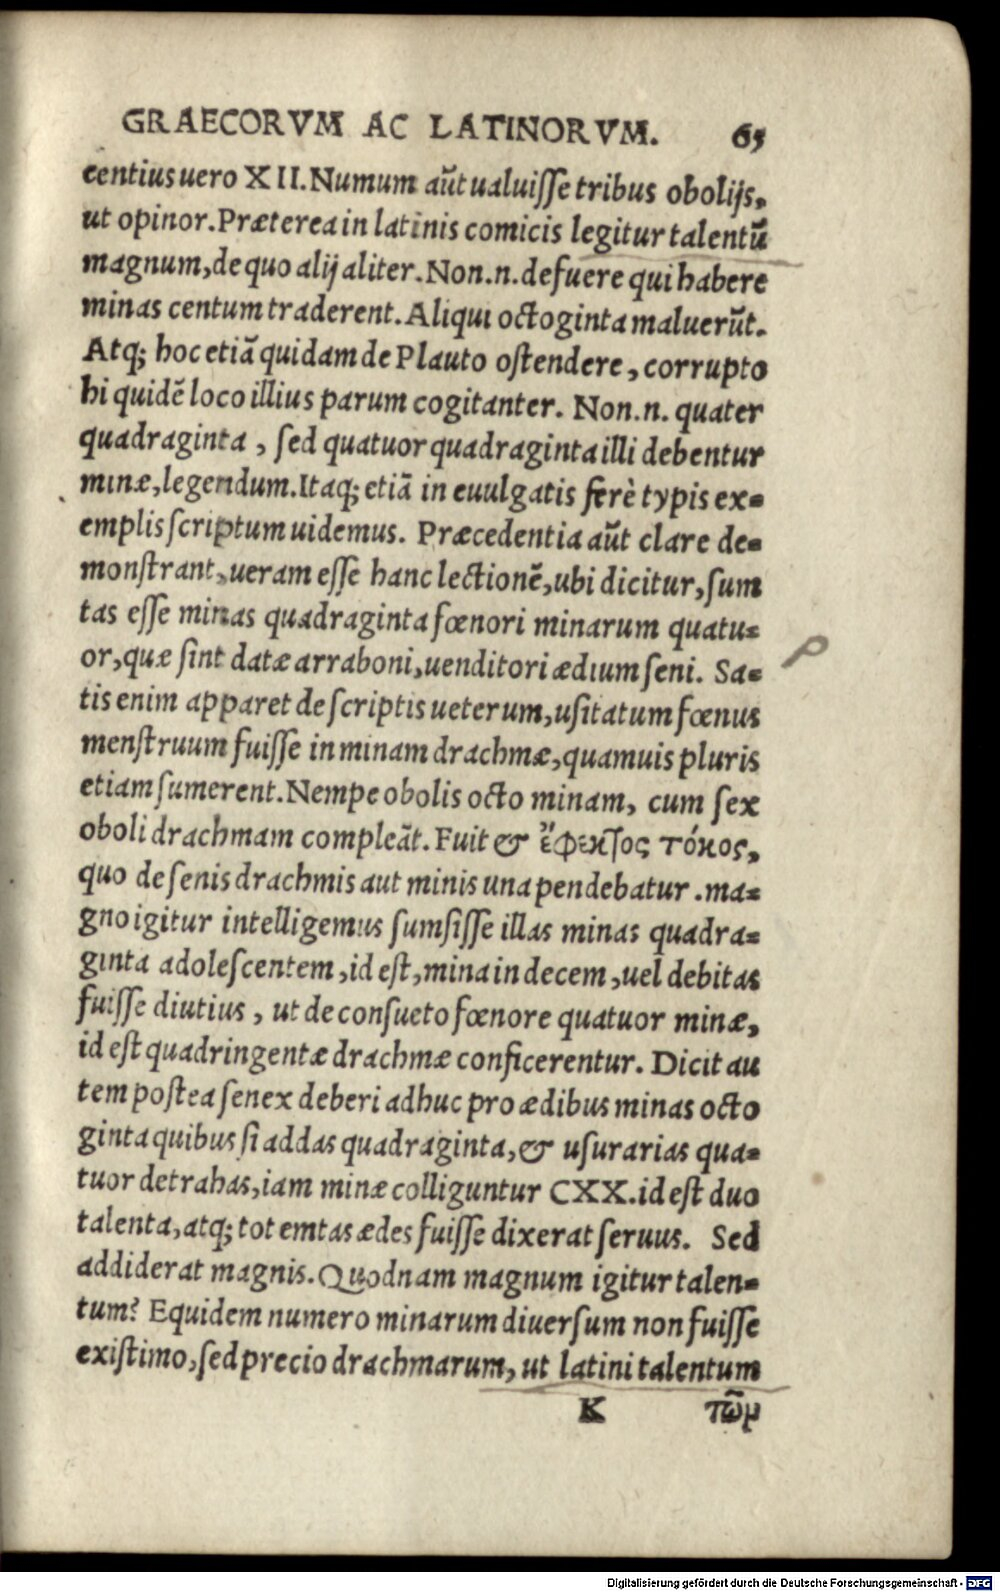 GRAECORVM AC LATINORVM. 65
centius uero XII. Numum aūt ualuisse tribus obolijs,
ut opinor. Præterea in latinis comicis legitur talentū
magnum, de quo alij aliter. Non.n. defuere qui habere
minas centum traderent. Aliqui octoginta maluerūt.
Atq; hoc etiā quidam de Plauto ostendere, corrupto
hi quidē loco illius parum cogitanter. Non.n. quater
quadraginta, sed quatuor quadraginta illi debentur
minæ, legendum. Itaq; etiā in euulgatis ferè typis ex=
emplis scriptum uidemus. Præcedentia aūt clare de=
monstrant, ueram esse hanc lectionē, ubi dicitur, sum
tas esse minas quadraginta fœnori minarum quatu=
or, quæ sint datæ arraboni, uenditori ædium seni. Sa=
tis enim apparet de scriptis ueterum, usitatum fœnus
menstruum fuisse in minam drachmæ, quamuis pluris
etiam sumerent. Nempe obolis octo minam, cum sex
oboli drachmam compleāt. Fuit & ἔφεκτος τόκος,
quo de senis drachmis aut minis una pendebatur. ma=
gno igitur intelligemus sumsisse illas minas quadra=
ginta adolescentem, id est, mina in decem, uel debitas
fuisse diutius, ut de consueto fœnore quatuor minæ,
id est quadringentæ drachmæ conficerentur. Dicit au
tem postea senex deberi adhuc pro ædibus minas octo
ginta quibus si addas quadraginta, & usurarias qua=
tuor detrahas, iam minæ colliguntur CXX. id est duo
talenta, atq; tot emtas ædes fuisse dixerat seruus. Sed
addiderat magnis. Quodnam magnum igitur talen=
tum? Equidem numero minarum diuersum non fuisse
existimo, sed precio drachmarum, ut latini talentum
K τῶν
Digitalisierung gefördert durch die Deutsche Forschungsgemeinschaft - DFG